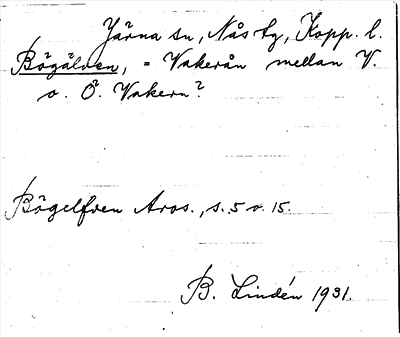 Järna sn, Nås tg, Kopp. l.
Bögälven, = Vakerån mellan V.
o. Ö. Vakern?
Bögelfven Aros., s. 5 o. 15.
B. Lindén 1931.